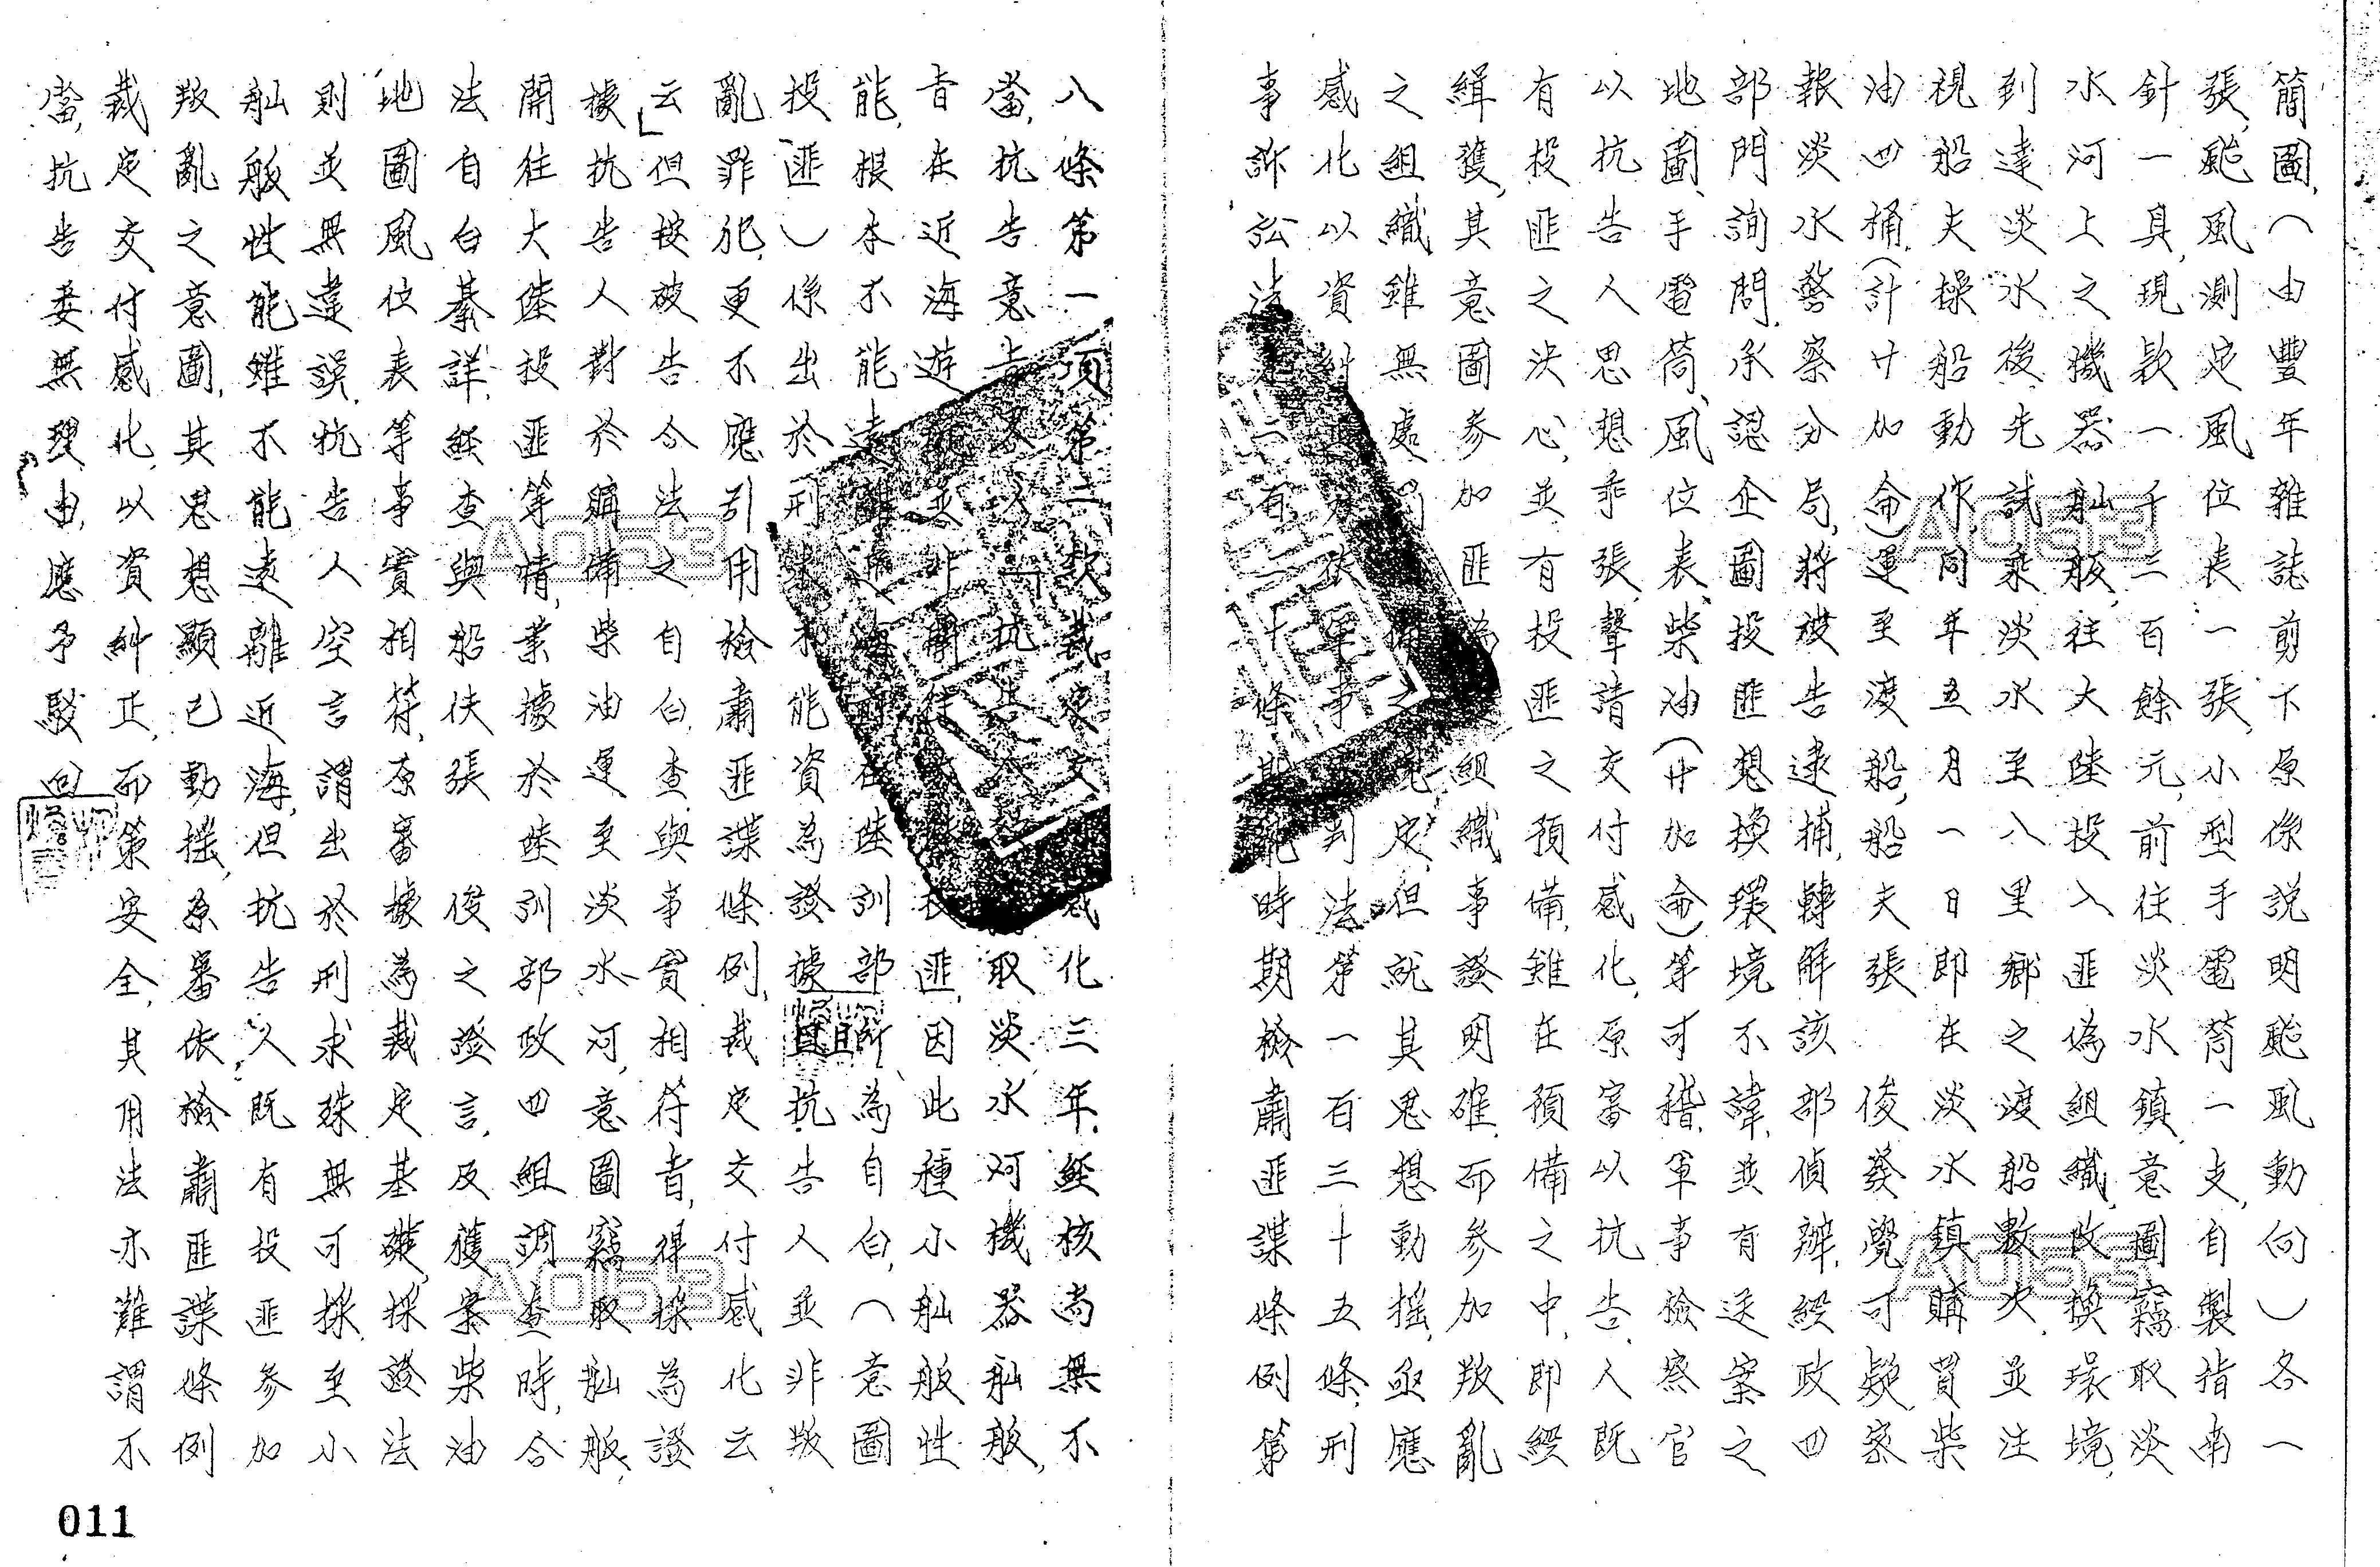 簡圖，（由豐年雜誌剪下原係説明颱風動向）各一
張，颱風測定風位表一張，小型手電筒一支，自製指南
針一具，現款一千二百餘元，前往淡水鎮，意圖竊取淡
水河上之機器舢舨，往大陸投入匪偽組織，改換環境，
到達淡水後，先試乘淡水至八里鄉之渡船數次，並注
視船夫操船動作，同年五月一日即在淡水鎮購買柴
油四桶，（計廿加侖）運至渡船，船夫張　俊發覺可疑，密
報淡水警察分局，將被告逮捕，轉解該部偵辦，經政四
部門詢問，承認企圖投匪想換環境不諱，並有送案之
地圖，手電筒，風位表，柴油（廿加侖）等可稽，軍事檢察官
以抗告人思想乖張，聲請交付感化，原審以抗告人既
有投匪之決心，並有投匪之預備，雖在預備之中，即經
緝獲，其意圖參加匪組織事證明確，而參加叛亂
之組織雖無處定，但就其思想動搖，亟應
感化以資糾軍事判法第一百三十五條，刑
事訴訟法有十條時期檢肅匪諜條例第
八條第一項第二款裁定交感化三年，經核尚無不
當，抗告意抗告取淡水河機器舢舨，
旨在近海遊匪，因此種小舢舨性
能，根本不能遠離近海陸訓部所為自白，（意圖
投匪）係出於刑求不能資為證據，且抗告人並非叛
亂罪犯，更不應引用檢肅匪諜條例，裁定交付感化云
云」但按被告合法之自白，查與事實相符者，得採為證
據，抗告人對於購備柴油運至淡水河，意圖竊取舢舨，
開往大陸投匪等情，業據於陸訓部政四組調查時，合
法自白綦詳，經查與船伕張　俊之證言，及獲案柴油
地圖風位表等事實相符，原審據為裁定基礎，採證法
則並無違誤，抗告人空言謂出於刑求殊無可採，至小
舢舨性能雖不能遠離近海，但抗告人既有投匪參加
叛亂之意圖，其思想顯已動搖，原審依檢肅匪諜條例
裁定交付感化，以資糾正，而策安全，其用法亦難謂不
當，抗告委無理由，應予駁回
011
AO53
AO53
AO53
AO53